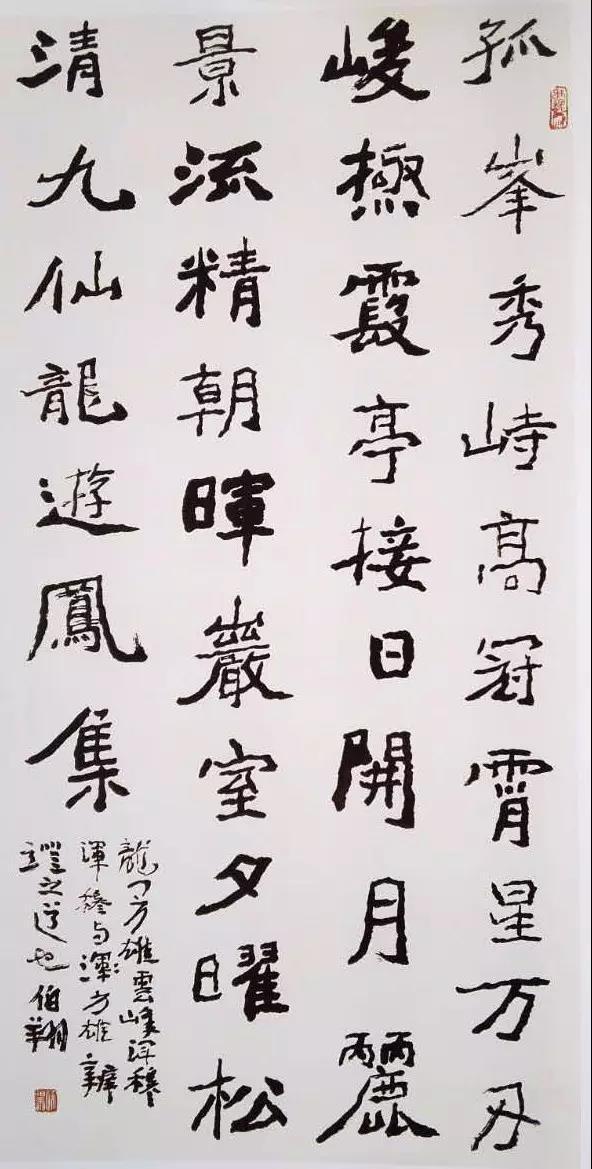 孤峯秀峙高冠霄星万刃
峻極霞亭接日開月麗
景流精朝暉巖室夕曜松
清九仙龍遊鳳集
龍门方雄雲峰渾穆
渾穆与方雄
之道也伯翔